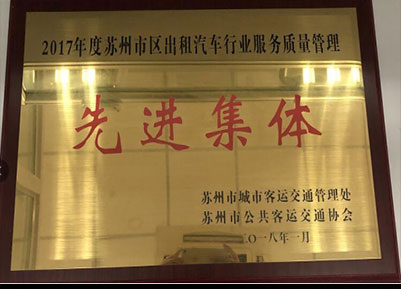 2017年度苏州市区出租汽车行业服务质量管理
先进集体
苏州市城市客运交通管理处
苏州市公共客运交通协会
二〇一八年一月